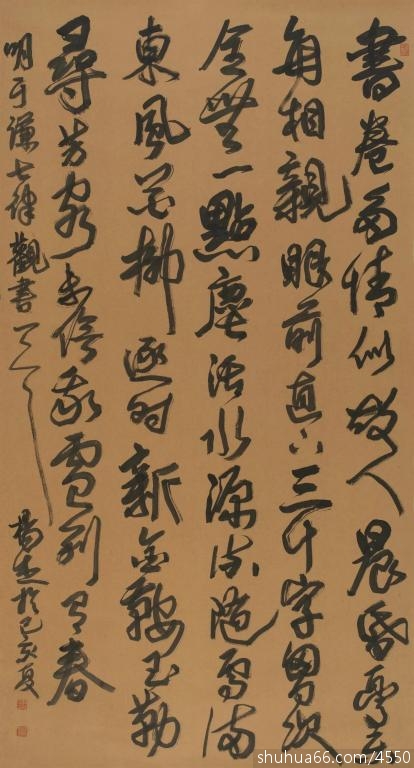 書卷多情似故人晨昏憂樂
每相親眼前直下三千字胸次
全無一點塵活水源流隨處滿
東風花柳逐时新金鞍玉勒
尋芳客未信我廬別有春
明于謙七律觀書一首
楊 於己亥夏
shuhua66.com/4550